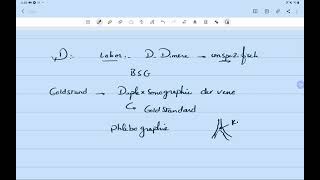 D: Labor:- D. Dimere → unspezifisch
BSG
Goldstand → Duplexsonographie der vene
Goldstandard
Phlebographie K.